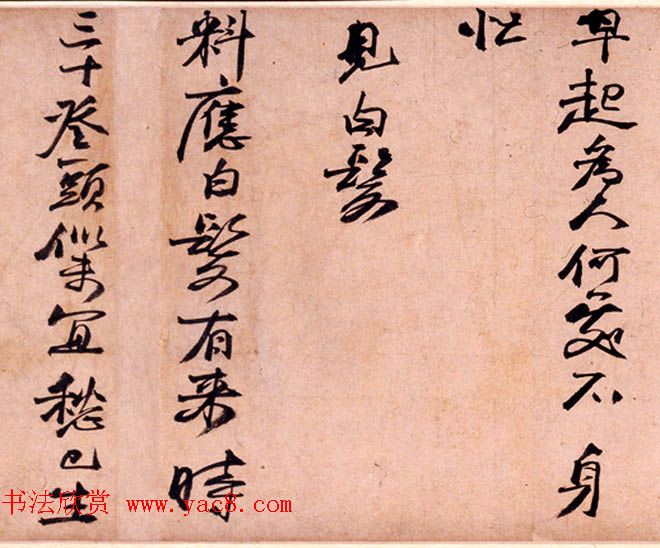 早起為人何不身
忙
見白髮
料應白髮有来時
三十登頭似未宜愁已生
书法欣赏 www.yac8.com